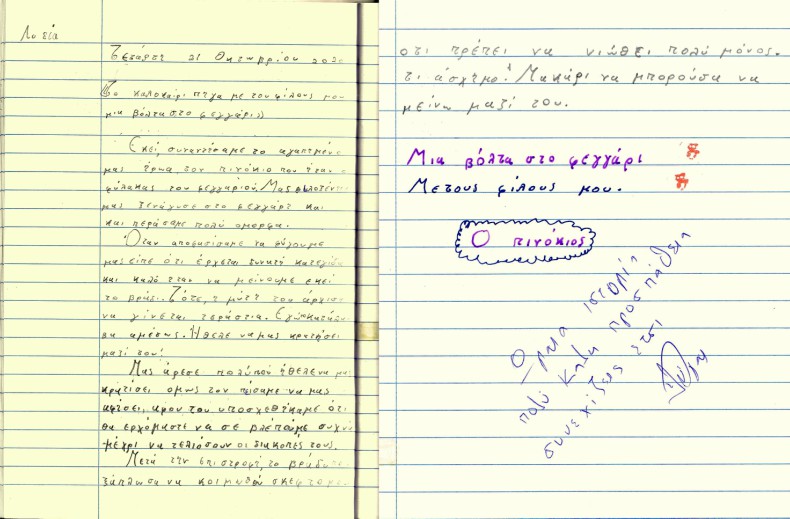 Λυσία
Τετάρτη 21 Οκτωμρίου 2020
Το καλοκαίρι πήγα με του φίλους μου
μια βόλτα στο φεγγάρι)
Εκεί, συναντήσαμε το αγαπημένο
μας ήρωα, τον πινόκιο που ήταν ο
φύλακας του φεγγαριού. Μας
μας στο φεγγάρι και
και περάσαμε πολύ όμορφα.
Όταν αποφασίσαμε να φύγουμε
μας είπε ότι έρχεται δυνατή καταιγίδα
και καλό ήταν να μείνουμε εκεί
το βράδυ. Τότε, η μύτη του άρχισε
να γίνεται τεράστια. Εγώ κατάλα
βα αμέσως. Ήθελε να μας κρατήσει
μαζί του!
Μας άρεσε πολύ που ήθελε να μα
κρατίσει όμως τον πίσαμε να μας
αφίσει, αφου του υποσχεθήκαμε ότι
θα ερχόμαστε να σε βλέπουμε συχνά
μέχρι να τελιόσουν οι διακοπές τους.
Μετά την επιστροφή, το βράδυ
ξάπλωσα να κοιμηθώ σκεφτόμεν
οτι πρέπει να νιώθει πολύ μόνος.
τι άσχημο! Μακάρι να μπορούσα να
μείνω μαζί του.
Μια βόλτα στο φεγγάρι
Με τους φίλους μου.
Ο πινόκιος
Ωραια ιστορία
πολύ καλη προσπάθεια
συνεχίζεις έτσι